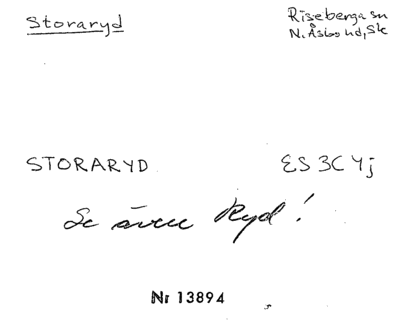 Storaryd
Riseberga sn
N. Åsbo hd, Sk
STORARYD
ES 3C 4j
Se även Ryd!
Nr 13894